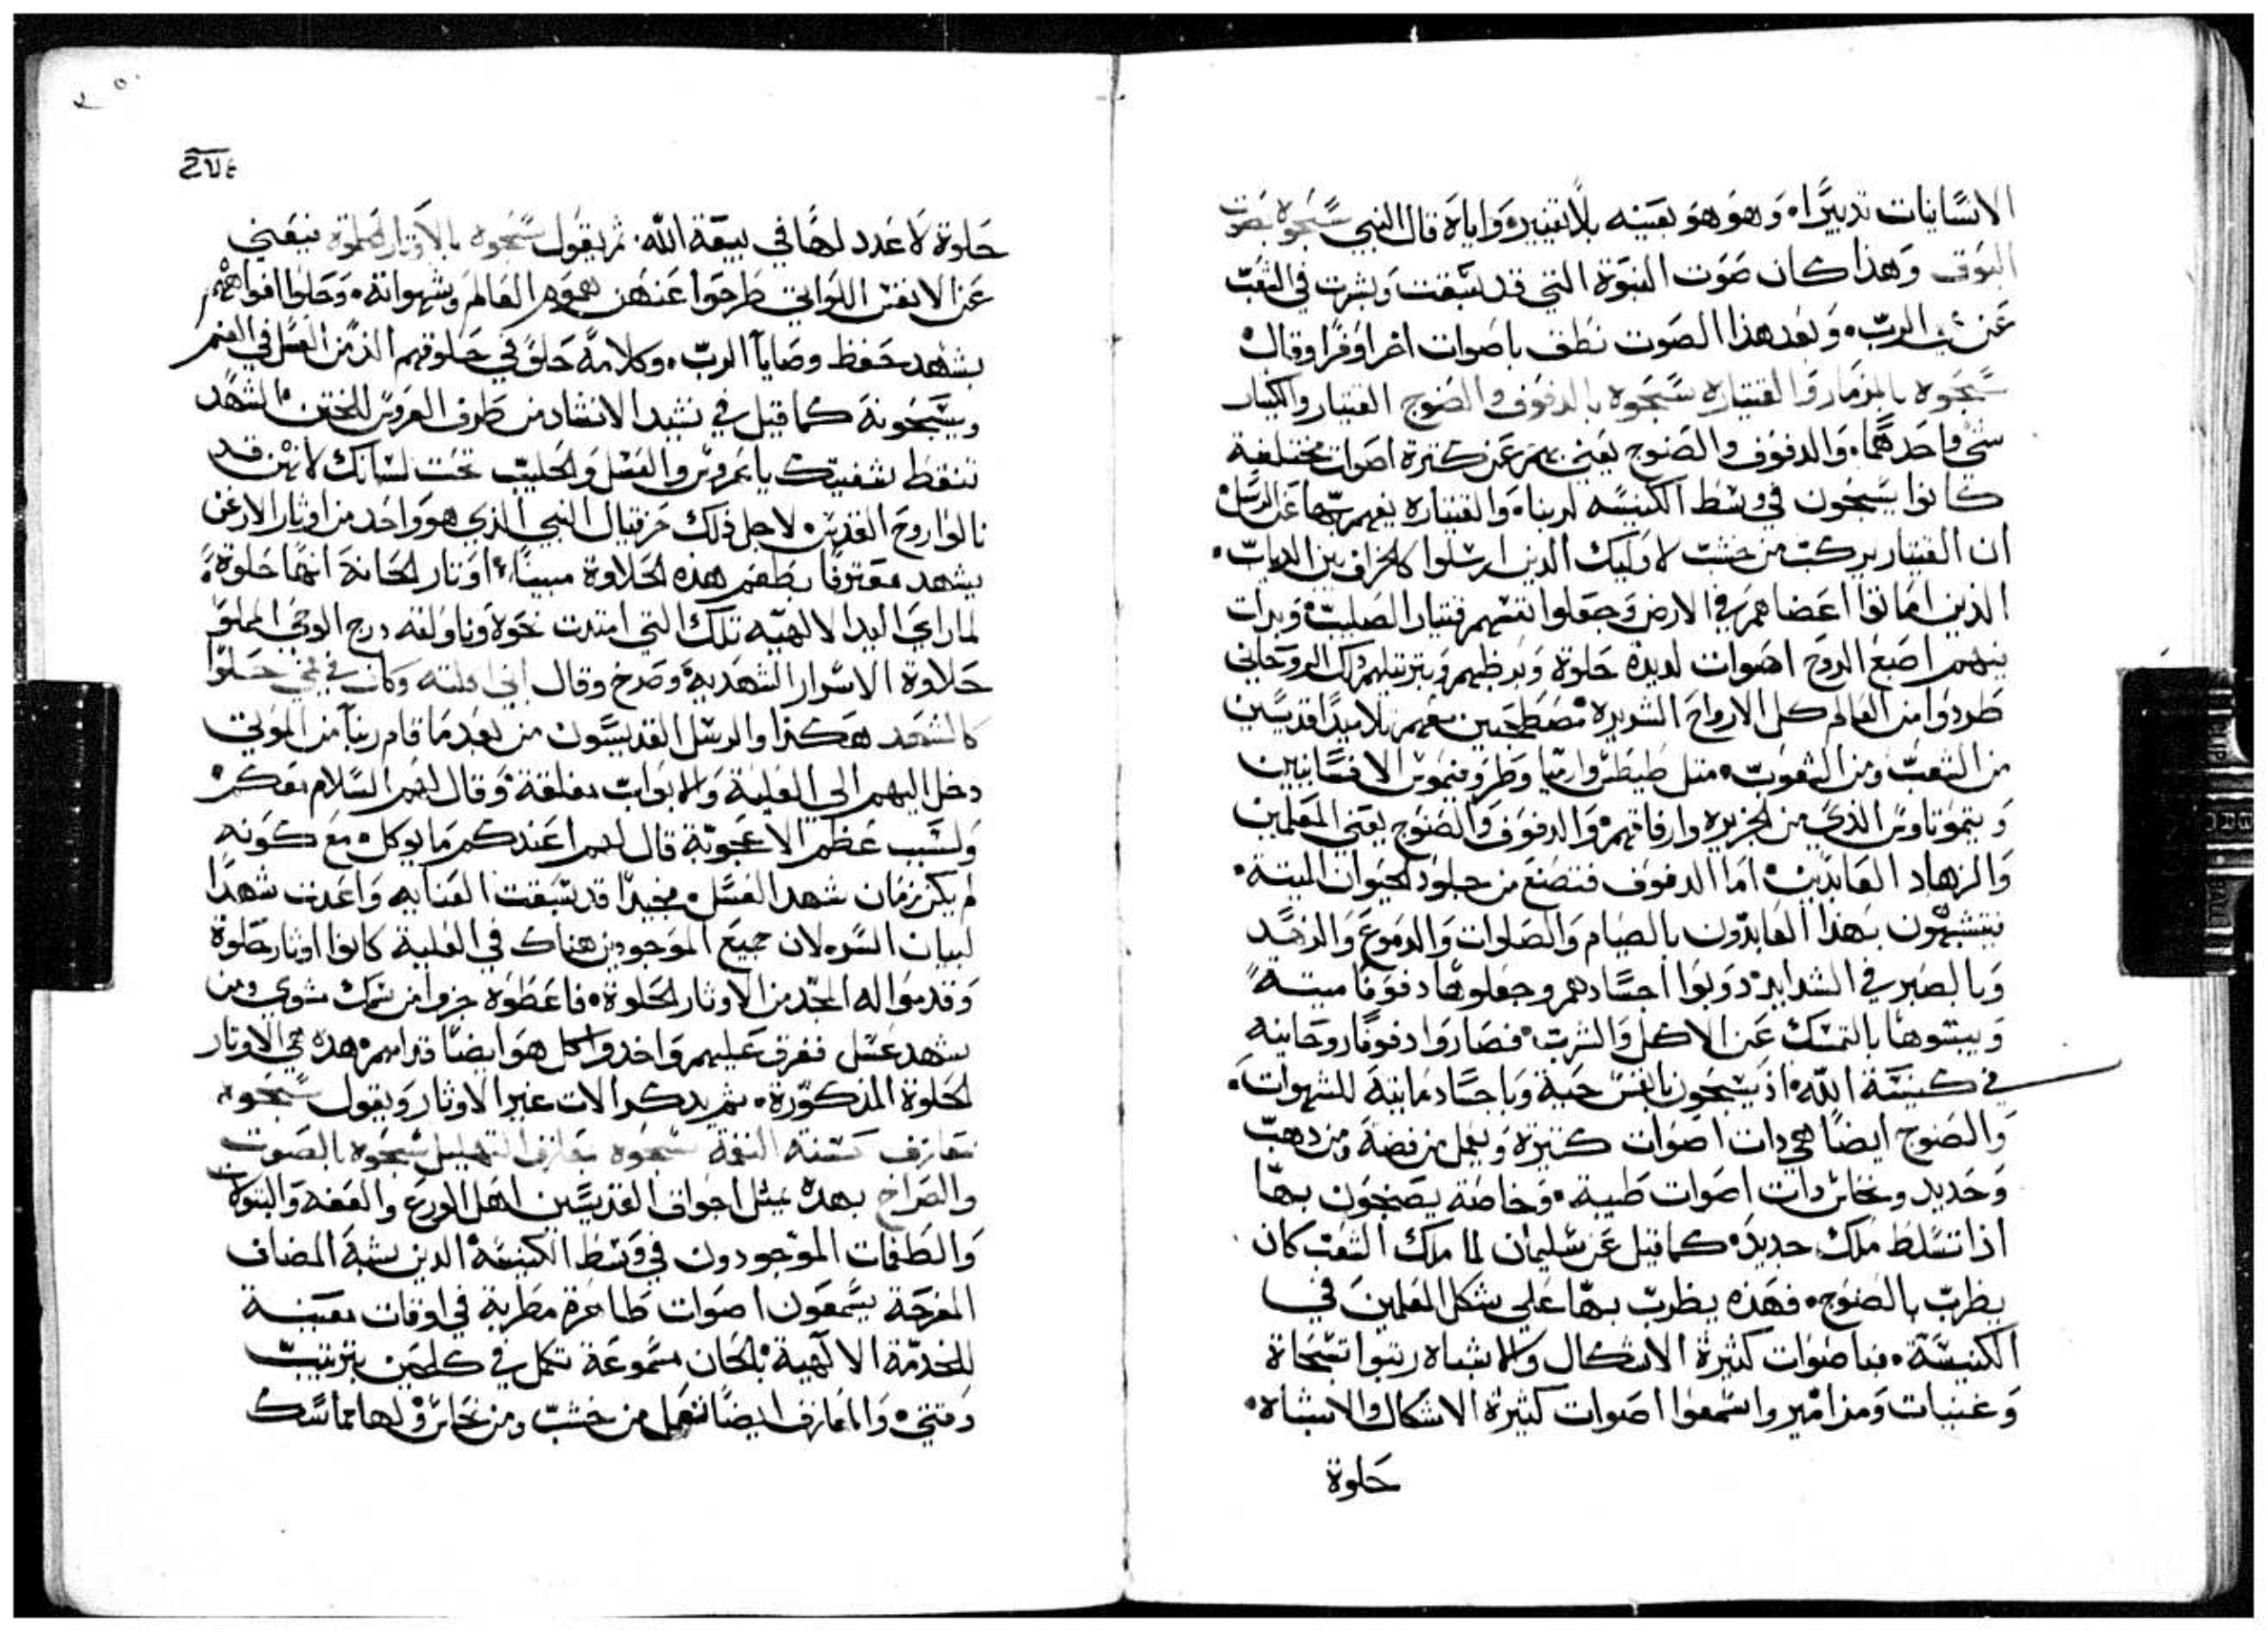 الانسانيات تدبيرًا، وهو هو بعينه بلا تغيير، واياه قال النبي سبحوه بصوت
البوق وهذا كان صوت النبوة التي قد سبقت وبشرت في الشعب
عن الرب، وبعد هذا الصوت نطق باصوات اخر اوفرًا وقال
سبحوه بالمزمار والقيتاره سبحوه بالدفوف والصنوج القيتار والكنار
شي واحد هما، والدفوف والصنوج يعني بهم عن كثرة اصوات مختلفة
كانوا يسبحون في وسط الكنيسه لربنا، والقيتاره يفهم بها عن الرسل
ان القيتار يركب من خشب لاوليك الذين ارسلوا كالخراف بين الدياب،
الذين اماتوا اعضاهم في الارض وجعلوا نفسهم قيتار الصليب، وبدات
بهم اصبع الروح اصوات لديدة حلوة وبوعظهم وبترتيلهم ذلك الروحاني
طردوا من العالم كل الارواح الشريره مصطحبين معهم تلاميدًا قديسين
من الشعب ومن الشعوب، مثل طيطس وارسطا وطروفيموس الافسانيين
وتيموتاوس الذي من الجزيره وارفاقهم، والدفوف والصنوج يعني المعلمين
والزهاد العابدين، اما الدفوف فتصنع من جلود الحيوان الميتة،
يتشبهون بهذا العابدون بالصيام والصلوات والدموع والزهد
وبالصبر في الشدايد، دوبوا اجسادهم وجعلوها دفوفًا ميتة
ويبسوها بالتمسك عن الاكل والشرب، فصاروا دفوفًا روحانيه
في كنيسة الله، اذ يسبحون بانفس حية وباجساد مايتة للشهوات،
والصنوج ايضًا هي دات اصوات كتيرة وتعمل من فضة ومن دهب
وحديد ونحاس دات اصوات طيبة، وخاصة يصنجون بها
اذا تسلط ملك جديد، كما قيل عن سليمان لما ملك الشعب كان
يطرب بالصنوج، فهذه يطرب بها على شكل المعلمين في
الكنيسة، فباصوات كثيرة الاشكال والاشباه رتبوا تسبحاة
وعنيات ومزامير واسمعوا اصوات كثيرة الاشكال والاشباه،
حلوة
حلوة لا عدد لها في بيعة الله، ثم يقول سبحوه بالاوتار الحلوة يعني
عن الانفس اللواتي طرحوا عنهن هموم العالم وشهواته، وحلوا افواههم
بشهد حفظ وصايا الرب، وكلامه حلو في حلوقهم الذ من العسل في الفم
ويسبحونه كما قيل في نشيد الانشاد من طرف العروس للختن، الشهد
تنقط شفتيك يا عروس والعسل والحليب تحت لسانك لانهن قد
نالوا روح القدس، لاجل ذلك حزقيال النبي الذي هو واحد من اوتار الارغن
يشهد معترفًا بطعم هذه الحلاوة مبينًا، اوتار الحانه انها حلوة،
لما راي اليد الالهيه تلك التي امتدت نحوه وناولته درج الوحي المملو
حلاوة الاسرار الشهدية وصرخ وقال اني اكلته وكان في فمي حلوًا
كالشهد هكذا والرسل القديسون من بعد ما قام ربنا من الموتي
دخل اليهم الي العلية والابواب مغلقة، وقال لهم السلام معكم،
ولسبب عظم الاعجوبة قال لهم اعندكم ما يوكل، مع كونه
لم يكن زمان شهد العسل، قد سبقت العنايه واعدت شهدًا
لبيان السر، لان جميع الموجودين هناك في العلية كانوا اوتار حلوة
وقدموا له المجد من الاوتار الحلوة، فاعطوه جزوا من سمك مشوي ومن
شهد عسل ففرق عليهم واخد واكل هو ايضًا قدامهم، هده هي الاوتار
الحلوة المذكورة، ثم يدكر الات غير الاوتار ويقول سبحوه
بمعازف حسنة النغمة سبحوه بمعازف التهليل سبحوه بالصوت
والصراخ بهده يمثل اجواق القديسين اهل الورع والعفه والبتولات
والطغمات الموجودون في وسط الكنيسة، الدين بشبه المصاف
المفرحة يسمعون اصوات طاهرة مطربة في اوقات معينة
للخدمة الالهية، بالحان مسموعة تكمل في كل حين بترتيب
ومتي، والمعازف ايضًا تعمل من خشب ومن نحاس، ولها تماسك